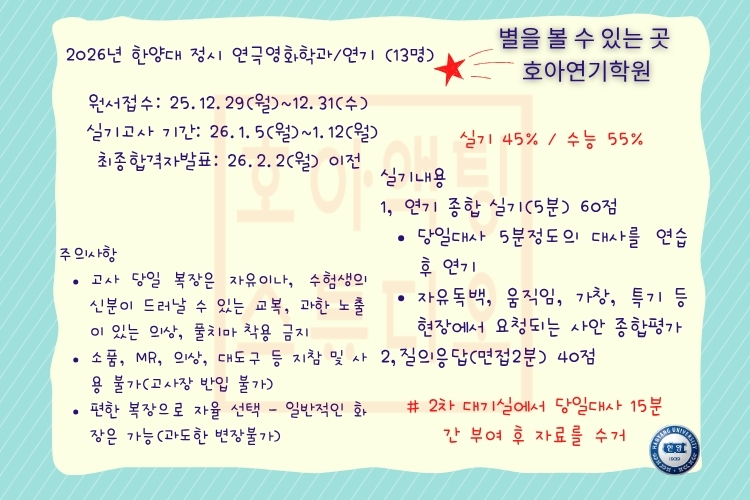 2026년 한양대 정시 연극영화학과/연기 (13명)
별을 볼 수 있는 곳
호아연기학원
원서접수: 25.12.29(월)~12.31(수)
실기고사 기간: 26.1.5(월)~1.12(월)
최종합격자발표: 26.2.2(월) 이전
주의사항
• 고사 당일 복장은 자유이나, 수험생의
신분이 드러날 수 있는 교복, 과한 노출
이 있는 의상, 풀치마 착용 금지
• 소품, MR, 의상, 대도구 등 지참 및 사
용 불가(고사장 반입 불가)
• 편한 복장으로 자율 선택 - 일반적인 화
장은 가능(과도한 변장불가)
실기 45% / 수능 55%
실기내용
1, 연기 종합 실기(5분) 60점
• 당일대사 5분정도의 대사를 연습
후 연기
• 자유독백, 움직임, 가창, 특기 등
현장에서 요청되는 사안 종합평가
2, 질의응답(면접2분) 40점
# 2차 대기실에서 당일대사 15분
간 부여 후 자료를 수거
호아액팅
스튜디오
HANYANG UNIVERSITY
한양
1939